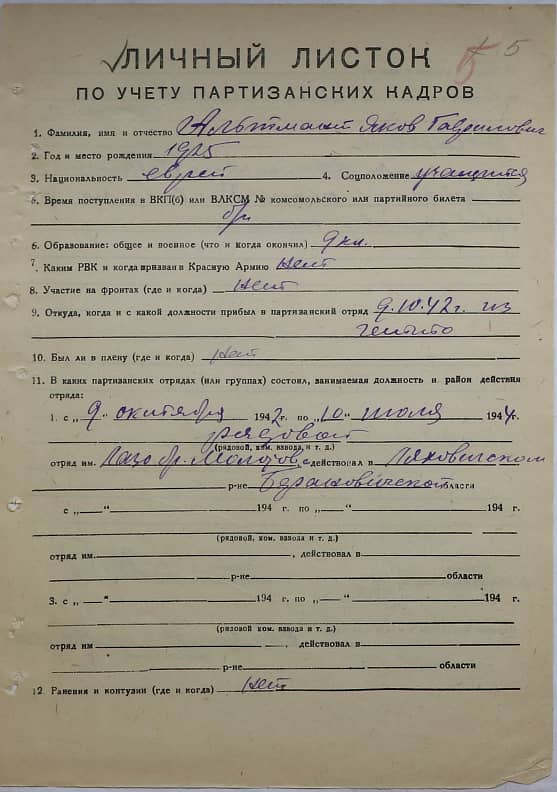 5 5
ЛИЧНЫЙ ЛИСТОК
ПО УЧЕТУ ПАРТИЗАНСКИХ КАДРОВ
1. Фамилия, имя и отчество Альтман Яков Гаврилович
2. Год и место рождения 1925
3. Национальность еврей 4. Соцположение учащийся
5. Время поступления в ВКП(б) или ВЛКСМ № комсомольского или партийного билета
б/п
6. Образование: общее и военное (что и когда окончил) 9 кл.
7. Каким РВК и когда призван в Красную Армию Нет
8. Участие на фронтах (где и когда) Нет
9. Откуда, когда и с какой должности прибыл в партизанский отряд 9.10.42 г. из
гетто
10. Был ли в плену (где и когда) Нет
11. В каких партизанских отрядах (или группах) состоял, занимаемая должность и район действия
отряда:
1. с „9“ октября 1942 г. по „10“ июля 1944 г.
рядовой
(рядовой, ком. взвода и т. д.)
отряд им. Лазо бр. Молотова, действовал в Ляховичском
р-не Барановичской области
с „ “ 194 г. по „ “ 194 г.
(рядовой, ком. взвода и т. д.)
отряд им. , действовал в
р-не области
3. с „ “ 194 г. по „ “ 194 г.
(рядовой ком. взвода и т. д.)
отряд им , действовал в
р-не области
12. Ранения и контузии (где и когда) Нет